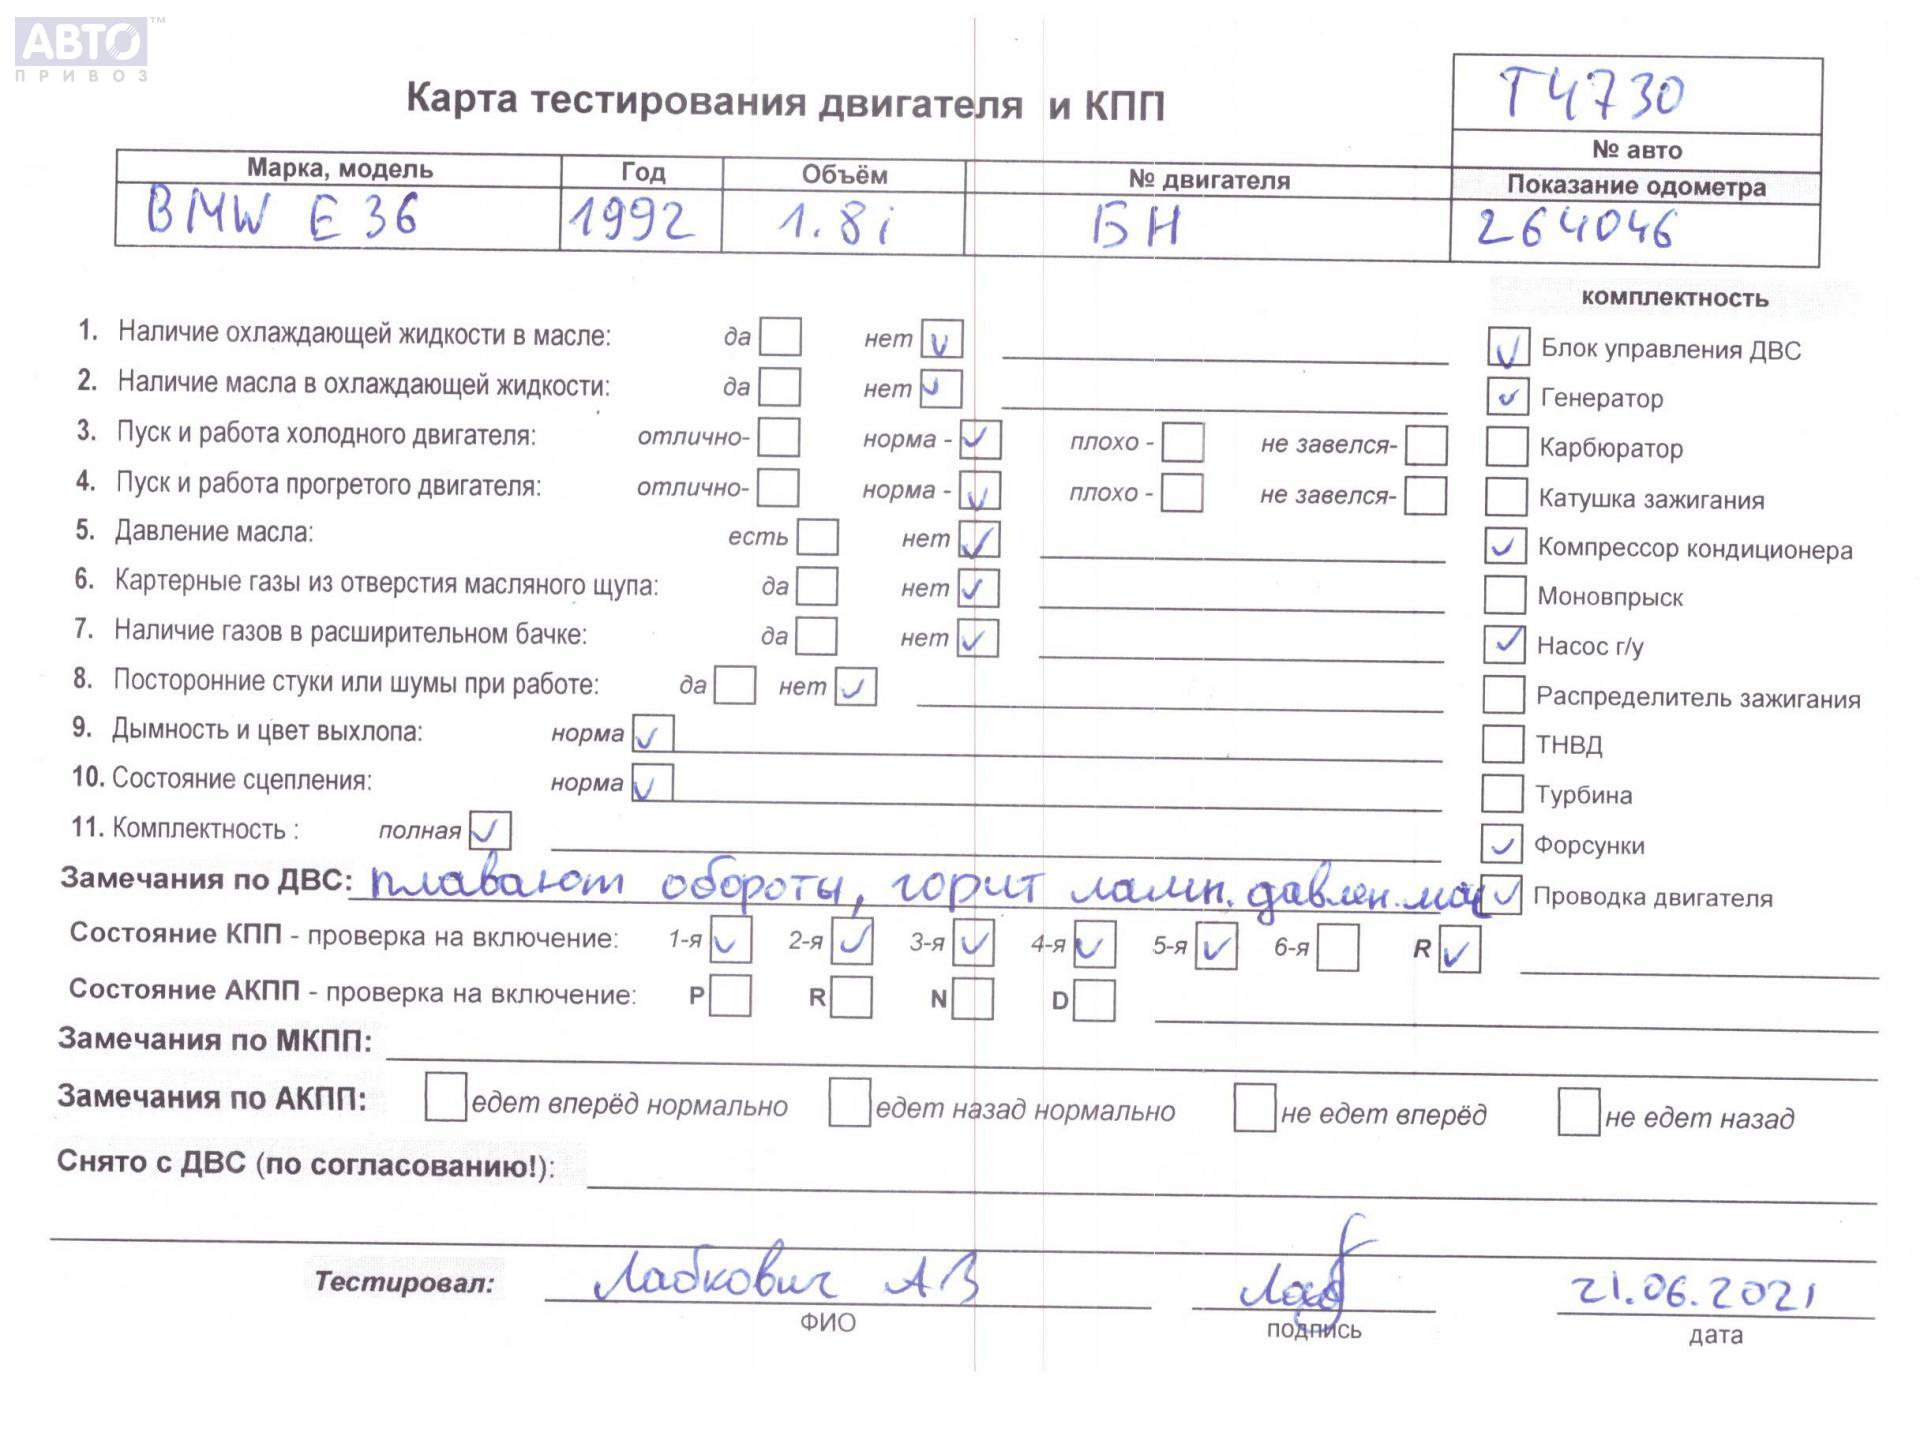 АВТО™
ПРИВОЗ
Карта тестирования двигателя и КПП
Т4730
№ авто
Марка, модель Год Объём № двигателя Показание одометра
BMW E36 1992 1.8i БН 264046
комплектность
1. Наличие охлаждающей жидкости в масле: да нет ✓ ✓ Блок управления ДВС
2. Наличие масла в охлаждающей жидкости: да нет ✓ ✓ Генератор
3. Пуск и работа холодного двигателя: отлично- норма - ✓ плохо - не завелся- Карбюратор
4. Пуск и работа прогретого двигателя: отлично- норма - ✓ плохо - не завелся- Катушка зажигания
5. Давление масла: есть нет ✓ ✓ Компрессор кондиционера
6. Картерные газы из отверстия масляного щупа: да нет ✓ Моновпрыск
7. Наличие газов в расширительном бачке: да нет ✓ ✓ Насос г/у
8. Посторонние стуки или шумы при работе: да нет ✓ Распределитель зажигания
9. Дымность и цвет выхлопа: норма ✓ ТНВД
10. Состояние сцепления: норма ✓ Турбина
11. Комплектность : полная ✓ ✓ Форсунки
Замечания по ДВС: плавают обороты, горит ламп. давлен. мас ✓ Проводка двигателя
Состояние КПП - проверка на включение: 1-я ✓ 2-я ✓ 3-я ✓ 4-я ✓ 5-я ✓ 6-я R ✓
Состояние АКПП - проверка на включение: P R N D
Замечания по МКПП:
Замечания по АКПП: едет вперёд нормально едет назад нормально не едет вперёд не едет назад
Снято с ДВС (по согласованию!):
Тестировал: Лабкович А В Лаб 21.06.2021
ФИО подпись дата